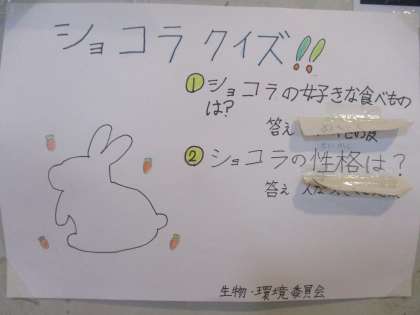 ショコラクイズ!!
①ショコラの好きな食べもの
は？
答え
②ショコラの性格は？
答え
生物・環境委員会